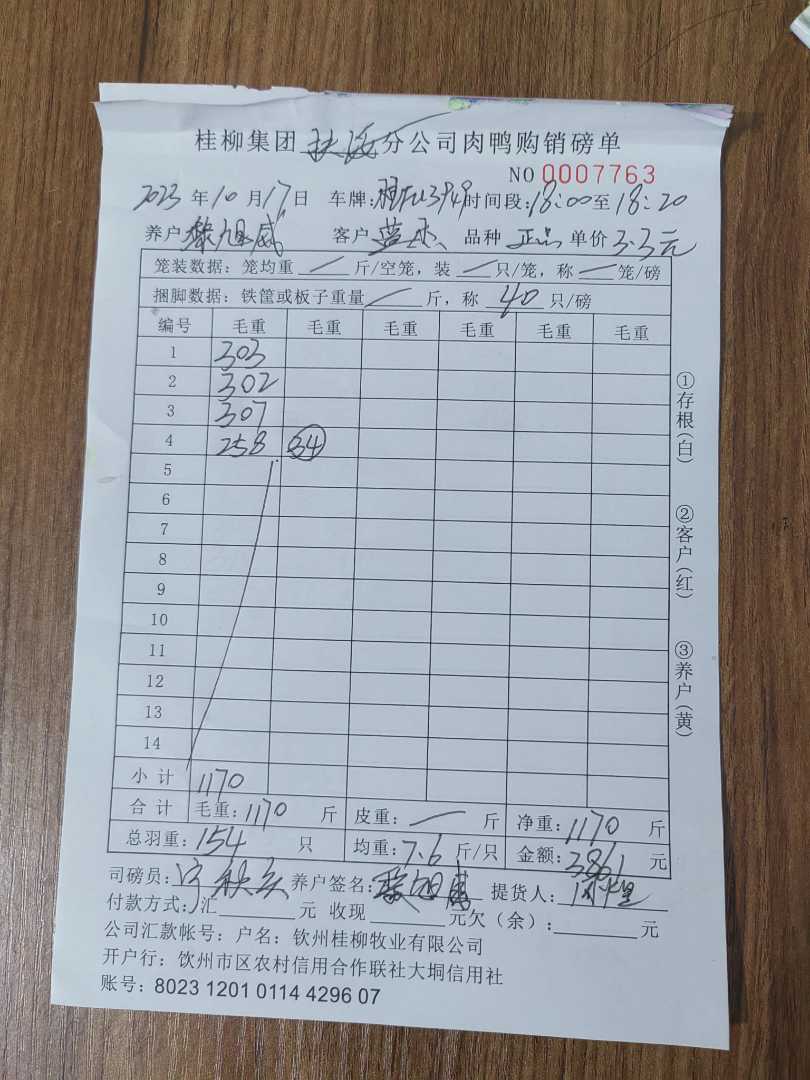 桂柳集团 分公司肉鸭购销磅单
NO 0007763
2023年10月17日 车牌: 时间段:18:00至18:20
养户 黎旭威 客户 蓝 品种 正品 单价3.3元
笼装数据:笼均重 / 斤/空笼,装 / 只/笼,称 / 笼/磅
捆脚数据:铁筐或板子重量 / 斤,称 40 只/磅
编号 毛重 毛重 毛重 毛重 毛重 毛重
1 303
2 302
3 307
4 258 34
5
6
7
8
9
10
11
12
13
14
小计 1170
合计 毛重:1170 斤 皮重: / 斤 净重:1170 斤
总羽重:154 只 均重:7.6 斤/只 金额:3861 元
司磅员: 养户签名:黎旭威 提货人:
付款方式:汇 元 收现 元欠(余): 元
公司汇款帐号:户名:钦州桂柳牧业有限公司
开户行:饮州市区农村信用合作联社大垌信用社
账号:8023 1201 0114 4296 07
①存根(白)
②客户(红)
③养户(黄)